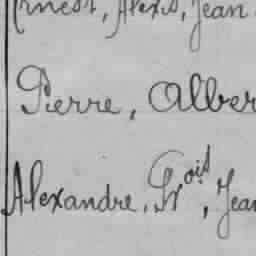 Ernest, Alexis, Jean
Pierre, Alber
Alexandre, Frois, Jean